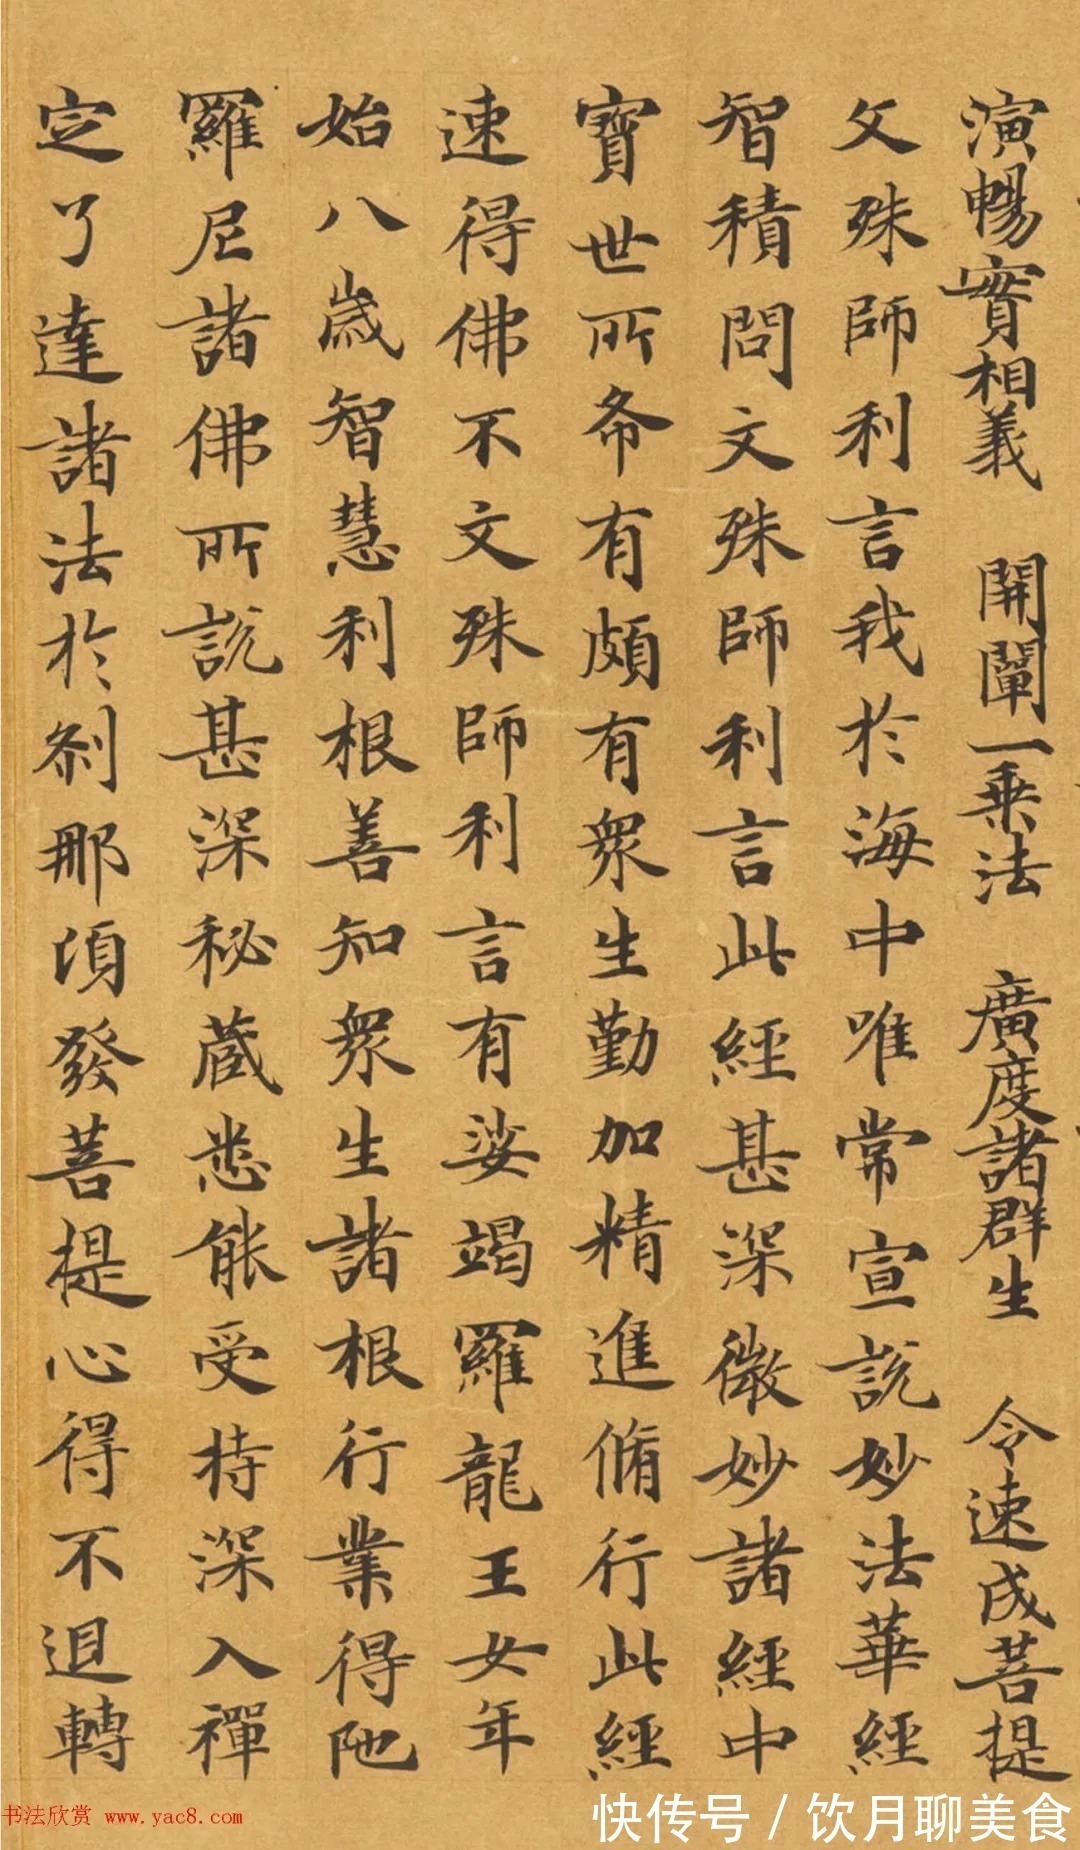 演暢實相義　開闡一乗法　廣度諸群生　令速成菩提
文殊師利言我於海中唯常宣説妙法華經
智積問文殊師利言此經甚深微妙諸經中
寶世所希有頗有衆生勤加精進脩行此經
速得佛不文殊師利言有娑竭羅龍王女年
始八歲智慧利根善知衆生諸根行業得陁
羅尼諸佛所説甚深秘蔵悉能受持深入禪
定了達諸法於刹那頃發菩提心得不退轉
书法欣赏 www.yac8.com
快传号 / 饮月聊美食